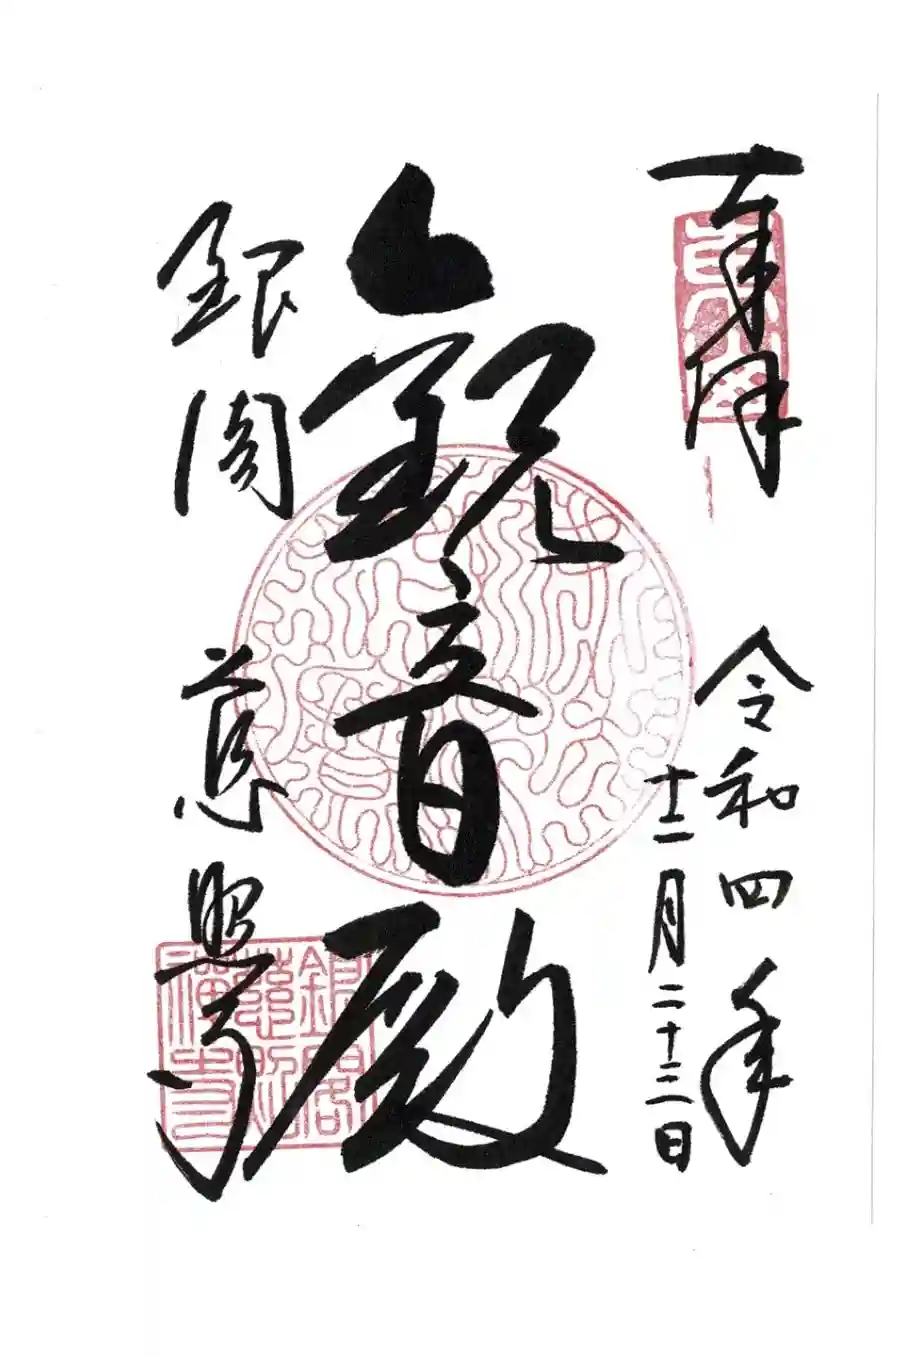 奉拝
令和四年
十二月二十三日
観音殿
銀閣
慈照寺
銀閣
慈照
禅寺